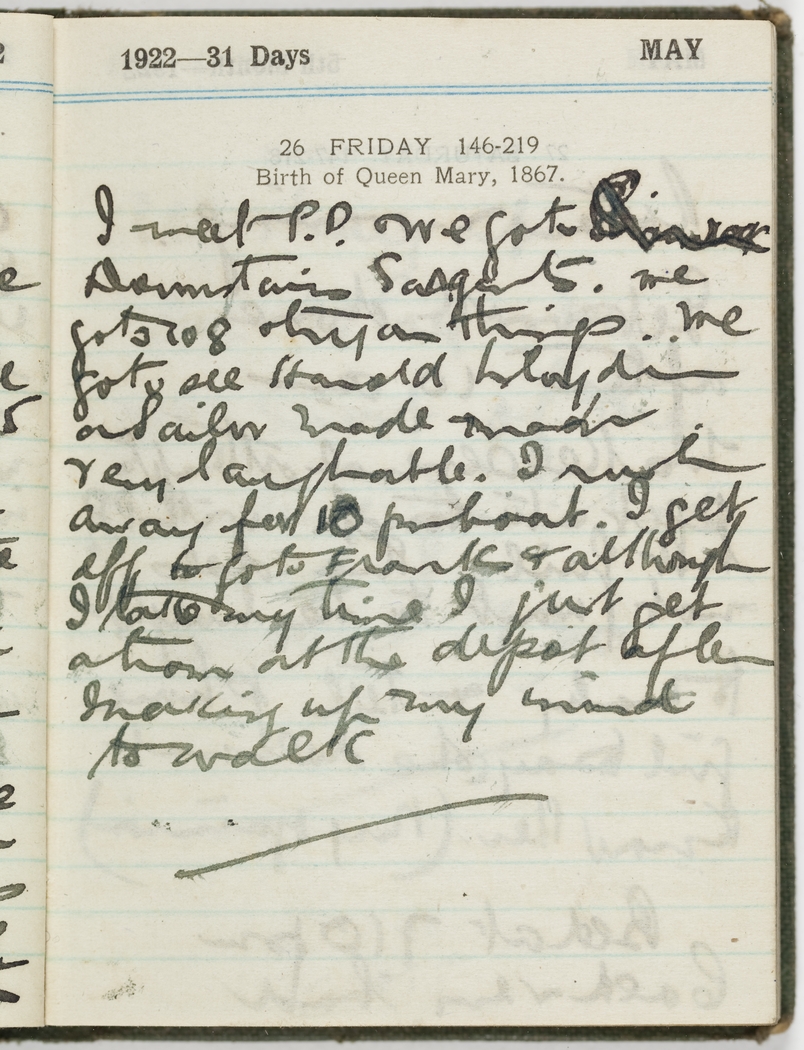 1922—31 Days MAY
26 FRIDAY 146-219
Birth of Queen Mary, 1867.
I meet P.D. We go to
Downstairs Sargents. we
got things. We
go to see Harold Lloyd in
a Sailor made man.
very laughable. I rush
away for 10 boat. I get
off to go to Frank & although
I take my time I just get
a tram at the depot after
making up my mind
to walk